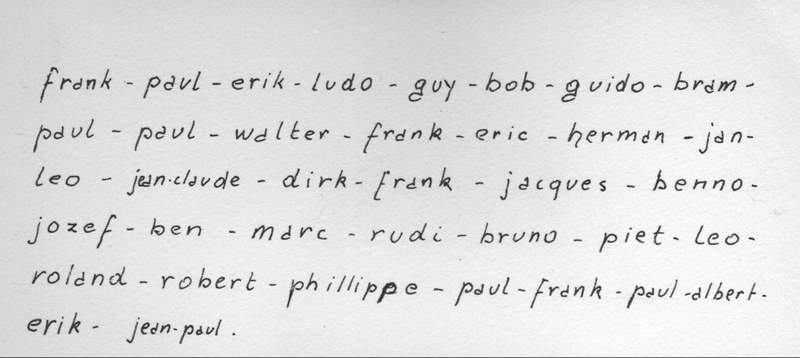 frank - paul - erik - ludo - guy - bob - guido - bram -
paul - paul - walter - frank - eric - herman - jan -
leo - jean-claude - dirk - frank - jacques - benno -
jozef - ben - marc - rudi - bruno - piet - leo -
roland - robert - phillippe - paul - frank - paul-albert -
erik - jean-paul .